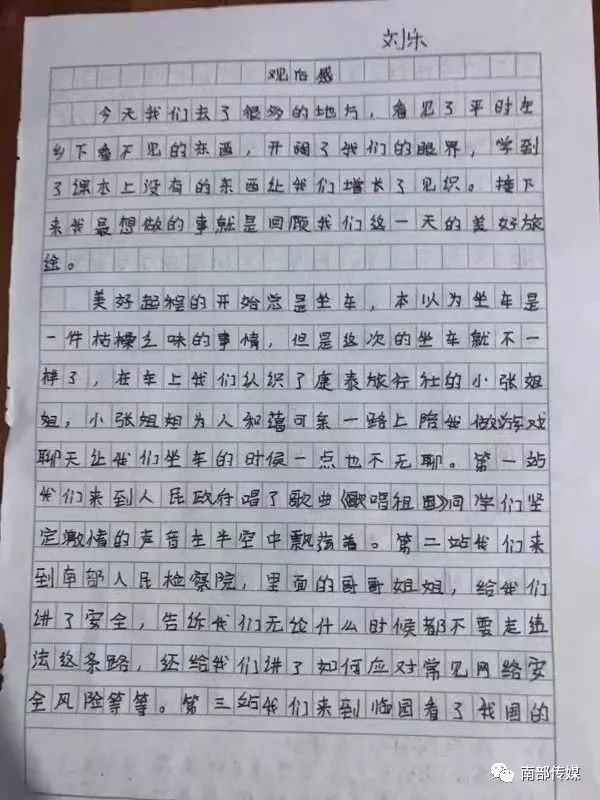 刘乐
观后感
今天我们去了很多的地方，看见了平时在
乡下看不见的东西，开阔了我们的眼界，学到
了课本上没有的东西让我们增长了见织。接下
来我最想做的事就是回顾我们这一天的美好旅
途。
美好起程的开始总是坐车，本以为坐车是
一件枯橾乏味的事情，但是这次的坐车就不一
样了，在车上我们认织了康泰旅行社的小张姐
姐，小张姐姐为人和蔼可亲一路上陪我做游戏
聊天让我们坐车的时候一点也不无聊。第一站
我们来到人民政府唱了歌曲《歌唱祖国》同学们坚
定激情的声音在半空中飘弦着。第二站我们来
到南部人民检察院，里面的哥哥姐姐，给我们
讲了安全，告诉我们无论什么时候都不要走违
法这条路，还给我们讲了如何应对常见网络安
全风险等等。第三站我们来到临园看了我国的
南部传媒